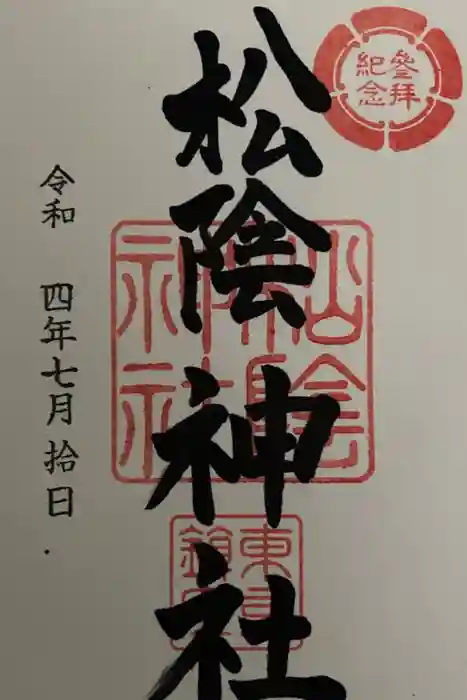 參拜
紀念
松陰神社
松陰
神社
令和 四年七月拾日.
東
鎮